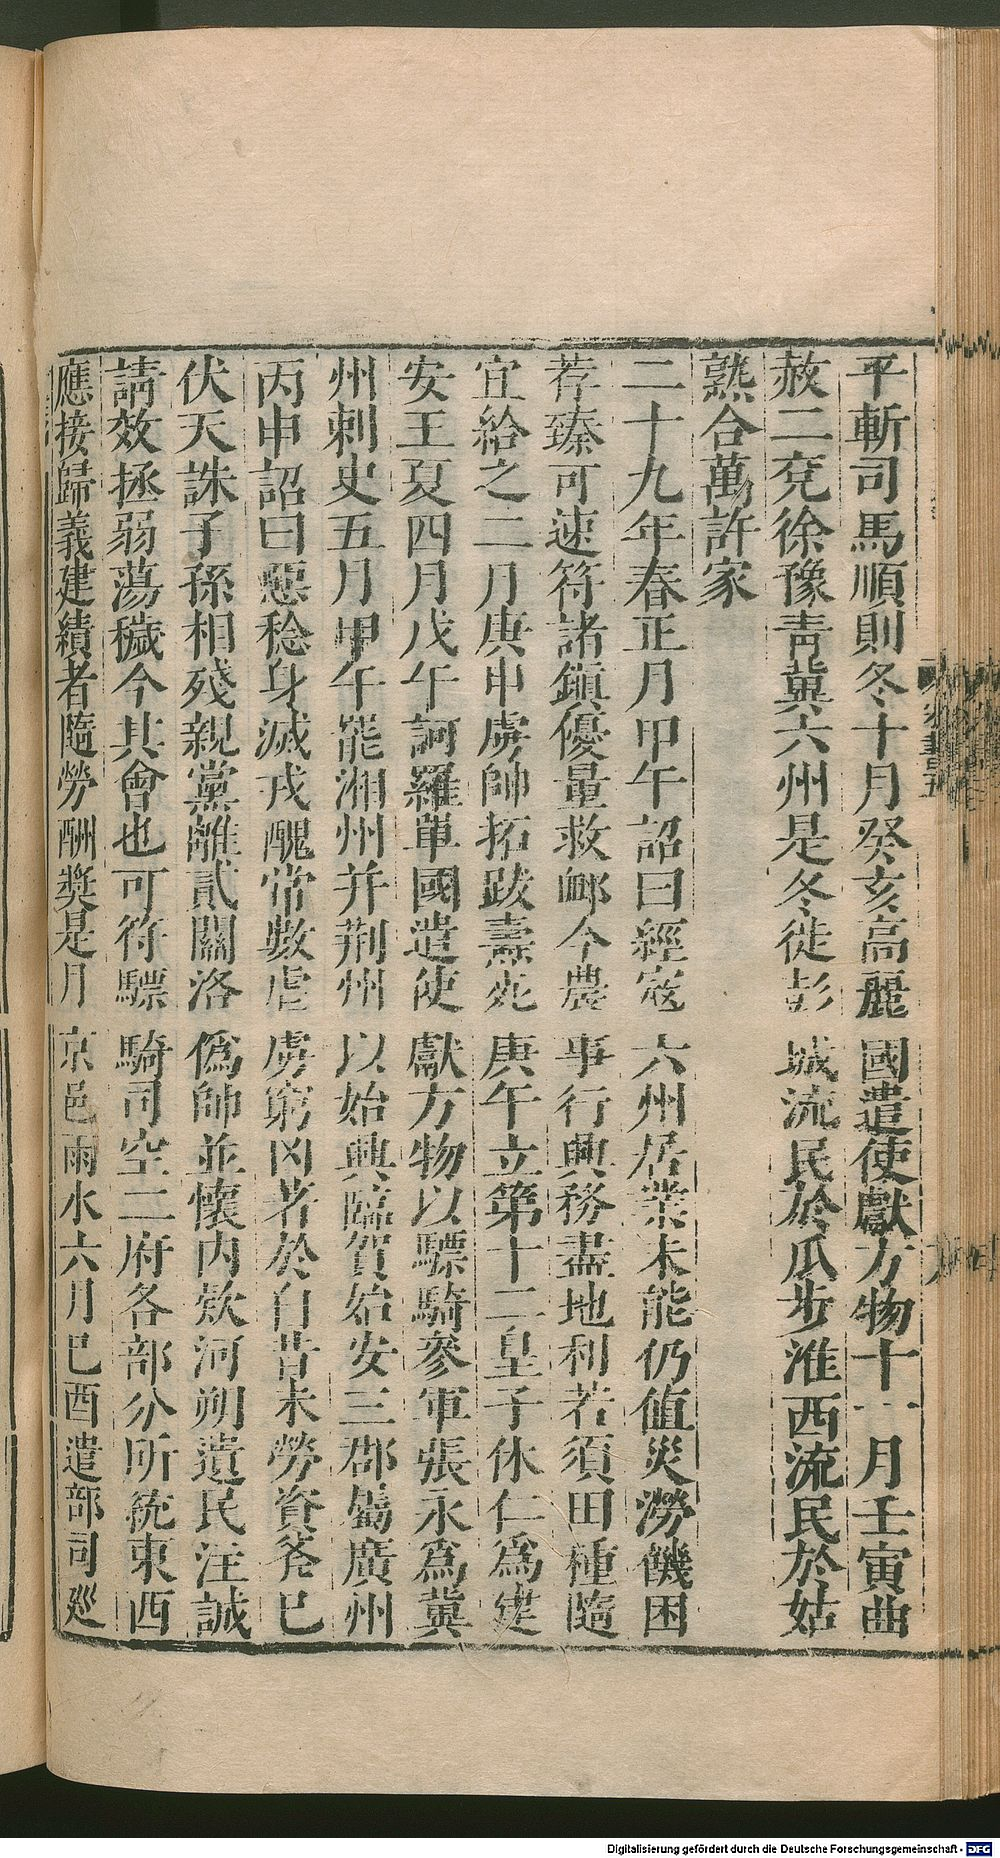 平斬司馬順則冬十月癸亥高麗國遣使獻方物十一月壬寅曲
赦二兗徐豫靑冀六州是冬徙彭城流民於瓜步淮西流民於姑
熟合萬許家
二十九年春正月甲午詔曰經寇六州居業未能仍值災澇饑困
荐臻可速符諸鎮優量救䘏今農事行興務盡地利若須田種隨
宜給之二月庚申虜帥拓跋燾死庚午立第十二皇子休仁爲建
安王夏四月戊午訶羅單國遣使獻方物以驃騎參軍張永爲冀
州刺史五月甲午罷湘州并荆州以始興臨賀始安三郡屬廣州
丙申詔曰惡稔身滅戎醜常數虐虜窮凶著於自昔未勞資斧巳
伏天誅子孫相殘親黨離貳關洛僞帥並懷內欵河朔遺民注誠
請效拯弱蕩穢今其會也可符驃騎司空二府各部分所統東西
應接歸義建績者隨勞酬獎是月京邑雨水六月巳酉遣部司巡
Digitalisierung gefördert durch die Deutsche Forschungsgemeinschaft - DFG